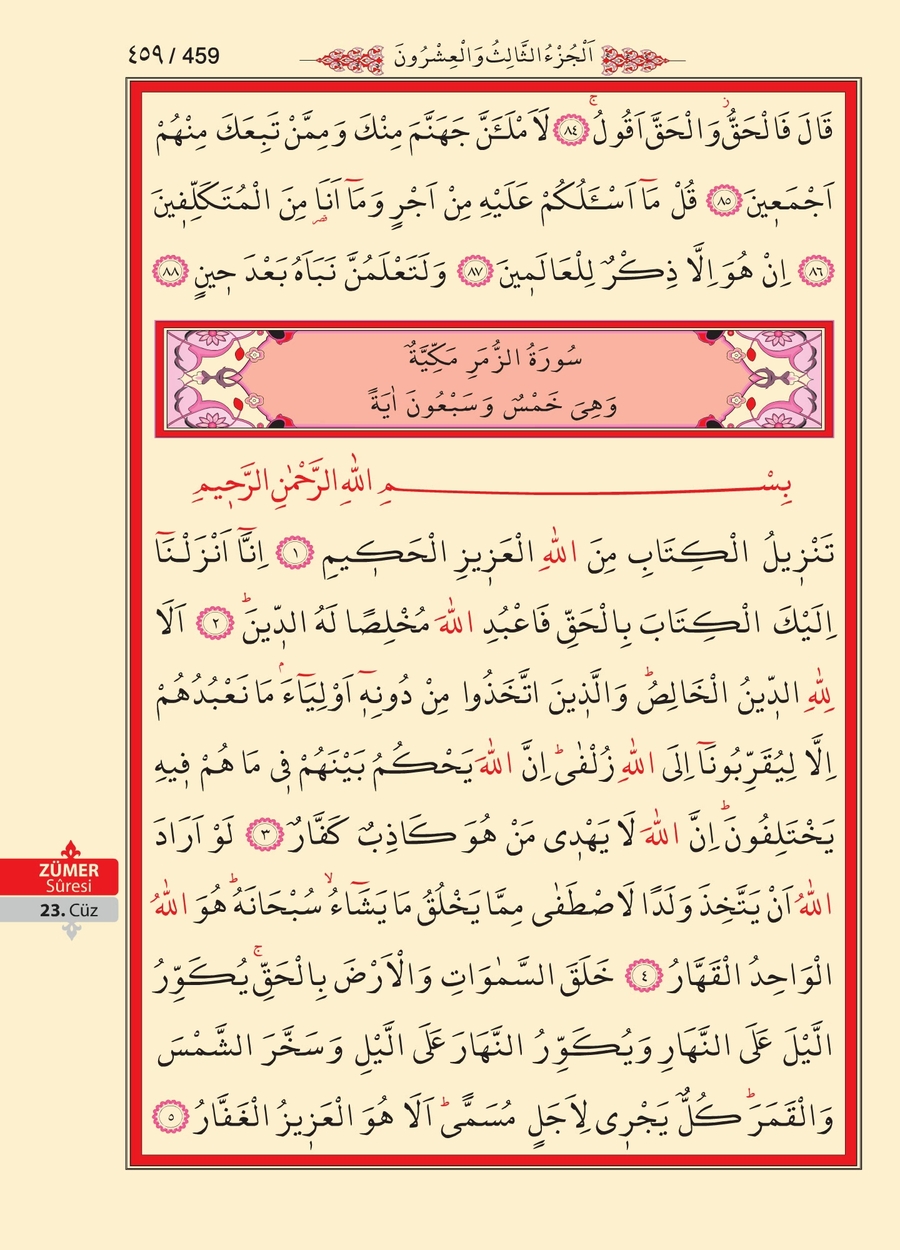 ٤٥٩ / 459
اَلْجُزْءُ الثَّالِثُ وَالْعِشْرُونَ
قَالَ فَالْحَقُّۘ وَالْحَقَّ اَقُولُۚ ﴿٨٤﴾ لَاَمْلَـَٔنَّ جَهَنَّمَ مِنْكَ وَمِمَّنْ تَبِعَكَ مِنْهُمْ
اَجْمَع۪ينَ ﴿٨٥﴾ قُلْ مَٓا اَسْـَٔلُكُمْ عَلَيْهِ مِنْ اَجْرٍ وَمَٓا اَنَا۬ مِنَ الْمُتَكَلِّف۪ينَ
﴿٨٦﴾ اِنْ هُوَ اِلَّا ذِكْرٌ لِلْعَالَم۪ينَ ﴿٨٧﴾ وَلَتَعْلَمُنَّ نَبَاَهُ بَعْدَ ح۪ينٍ ﴿٨٨﴾
سُورَةُ الزُّمَرِ مَكِّيَّةٌ
وَهِيَ خَمْسٌ وَسَبْعُونَ اٰيَةً
بِسْمِ اللّٰهِ الرَّحْمٰنِ الرَّح۪يمِ
تَنْز۪يلُ الْكِتَابِ مِنَ اللّٰهِ الْعَز۪يزِ الْحَك۪يمِ ﴿١﴾ اِنَّٓا اَنْزَلْنَٓا
اِلَيْكَ الْكِتَابَ بِالْحَقِّ فَاعْبُدِ اللّٰهَ مُخْلِصًا لَهُ الدّ۪ينَۜ ﴿٢﴾ اَلَا
لِلّٰهِ الدّ۪ينُ الْخَالِصُۜ وَالَّذ۪ينَ اتَّخَذُوا مِنْ دُونِه۪ٓ اَوْلِيَٓاءَۢ مَا نَعْبُدُهُمْ
اِلَّا لِيُقَرِّبُونَٓا اِلَى اللّٰهِ زُلْفٰىۜ اِنَّ اللّٰهَ يَحْكُمُ بَيْنَهُمْ ف۪ي مَا هُمْ ف۪يهِ
يَخْتَلِفُونَۜ اِنَّ اللّٰهَ لَا يَهْد۪ي مَنْ هُوَ كَاذِبٌ كَفَّارٌ ﴿٣﴾ لَوْ اَرَادَ
اللّٰهُ اَنْ يَتَّخِذَ وَلَدًا لَاصْطَفٰى مِمَّا يَخْلُقُ مَا يَشَٓاءُۙ سُبْحَانَهُۜ هُوَ اللّٰهُ
الْوَاحِدُ الْقَهَّارُ ﴿٤﴾ خَلَقَ السَّمٰوَاتِ وَالْاَرْضَ بِالْحَقِّۚ يُكَوِّرُ
الَّيْلَ عَلَى النَّهَارِ وَيُكَوِّرُ النَّهَارَ عَلَى الَّيْلِ وَسَخَّرَ الشَّمْسَ
وَالْقَمَرَۜ كُلٌّ يَجْر۪ي لِاَجَلٍ مُسَمًّىۜ اَلَا هُوَ الْعَز۪يزُ الْغَفَّارُ ﴿٥﴾
ZÜMER
Sûresi
23. Cüz